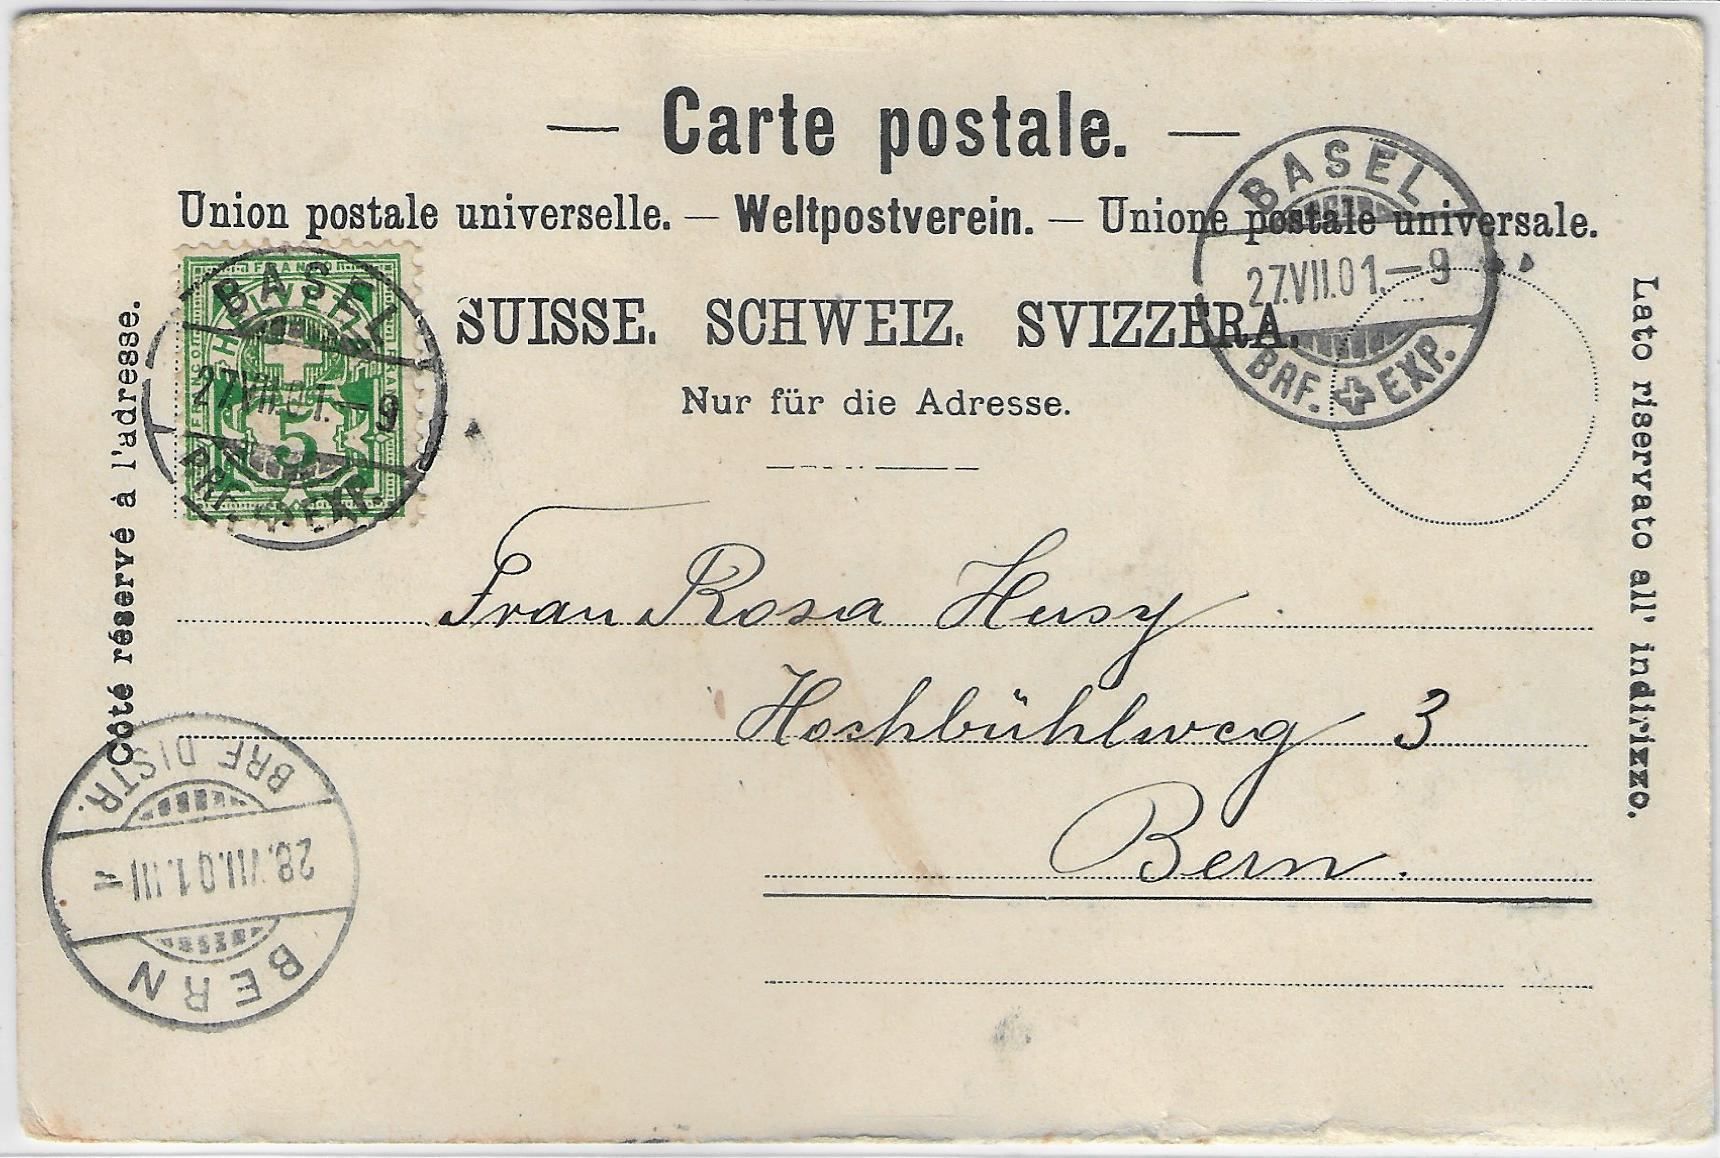 — Carte postale. —
Union postale universelle. — Weltpostverein. — Unione postale universale.
SUISSE. SCHWEIZ. SVIZZERA.
Nur für die Adresse.
Côté réservé à l'adresse.
Lato riservato all' indirizzo.
BASEL
27.VII.01.–9
BRF. EXP.
FRANCO
HELVETIA
5
BASEL
27.VII.01.–9
BRF. EXP.
Frau Rosa Husy
Hochbühlweg 3
Bern.
BERN
28.VII.01.III–
BRF. DISTR.